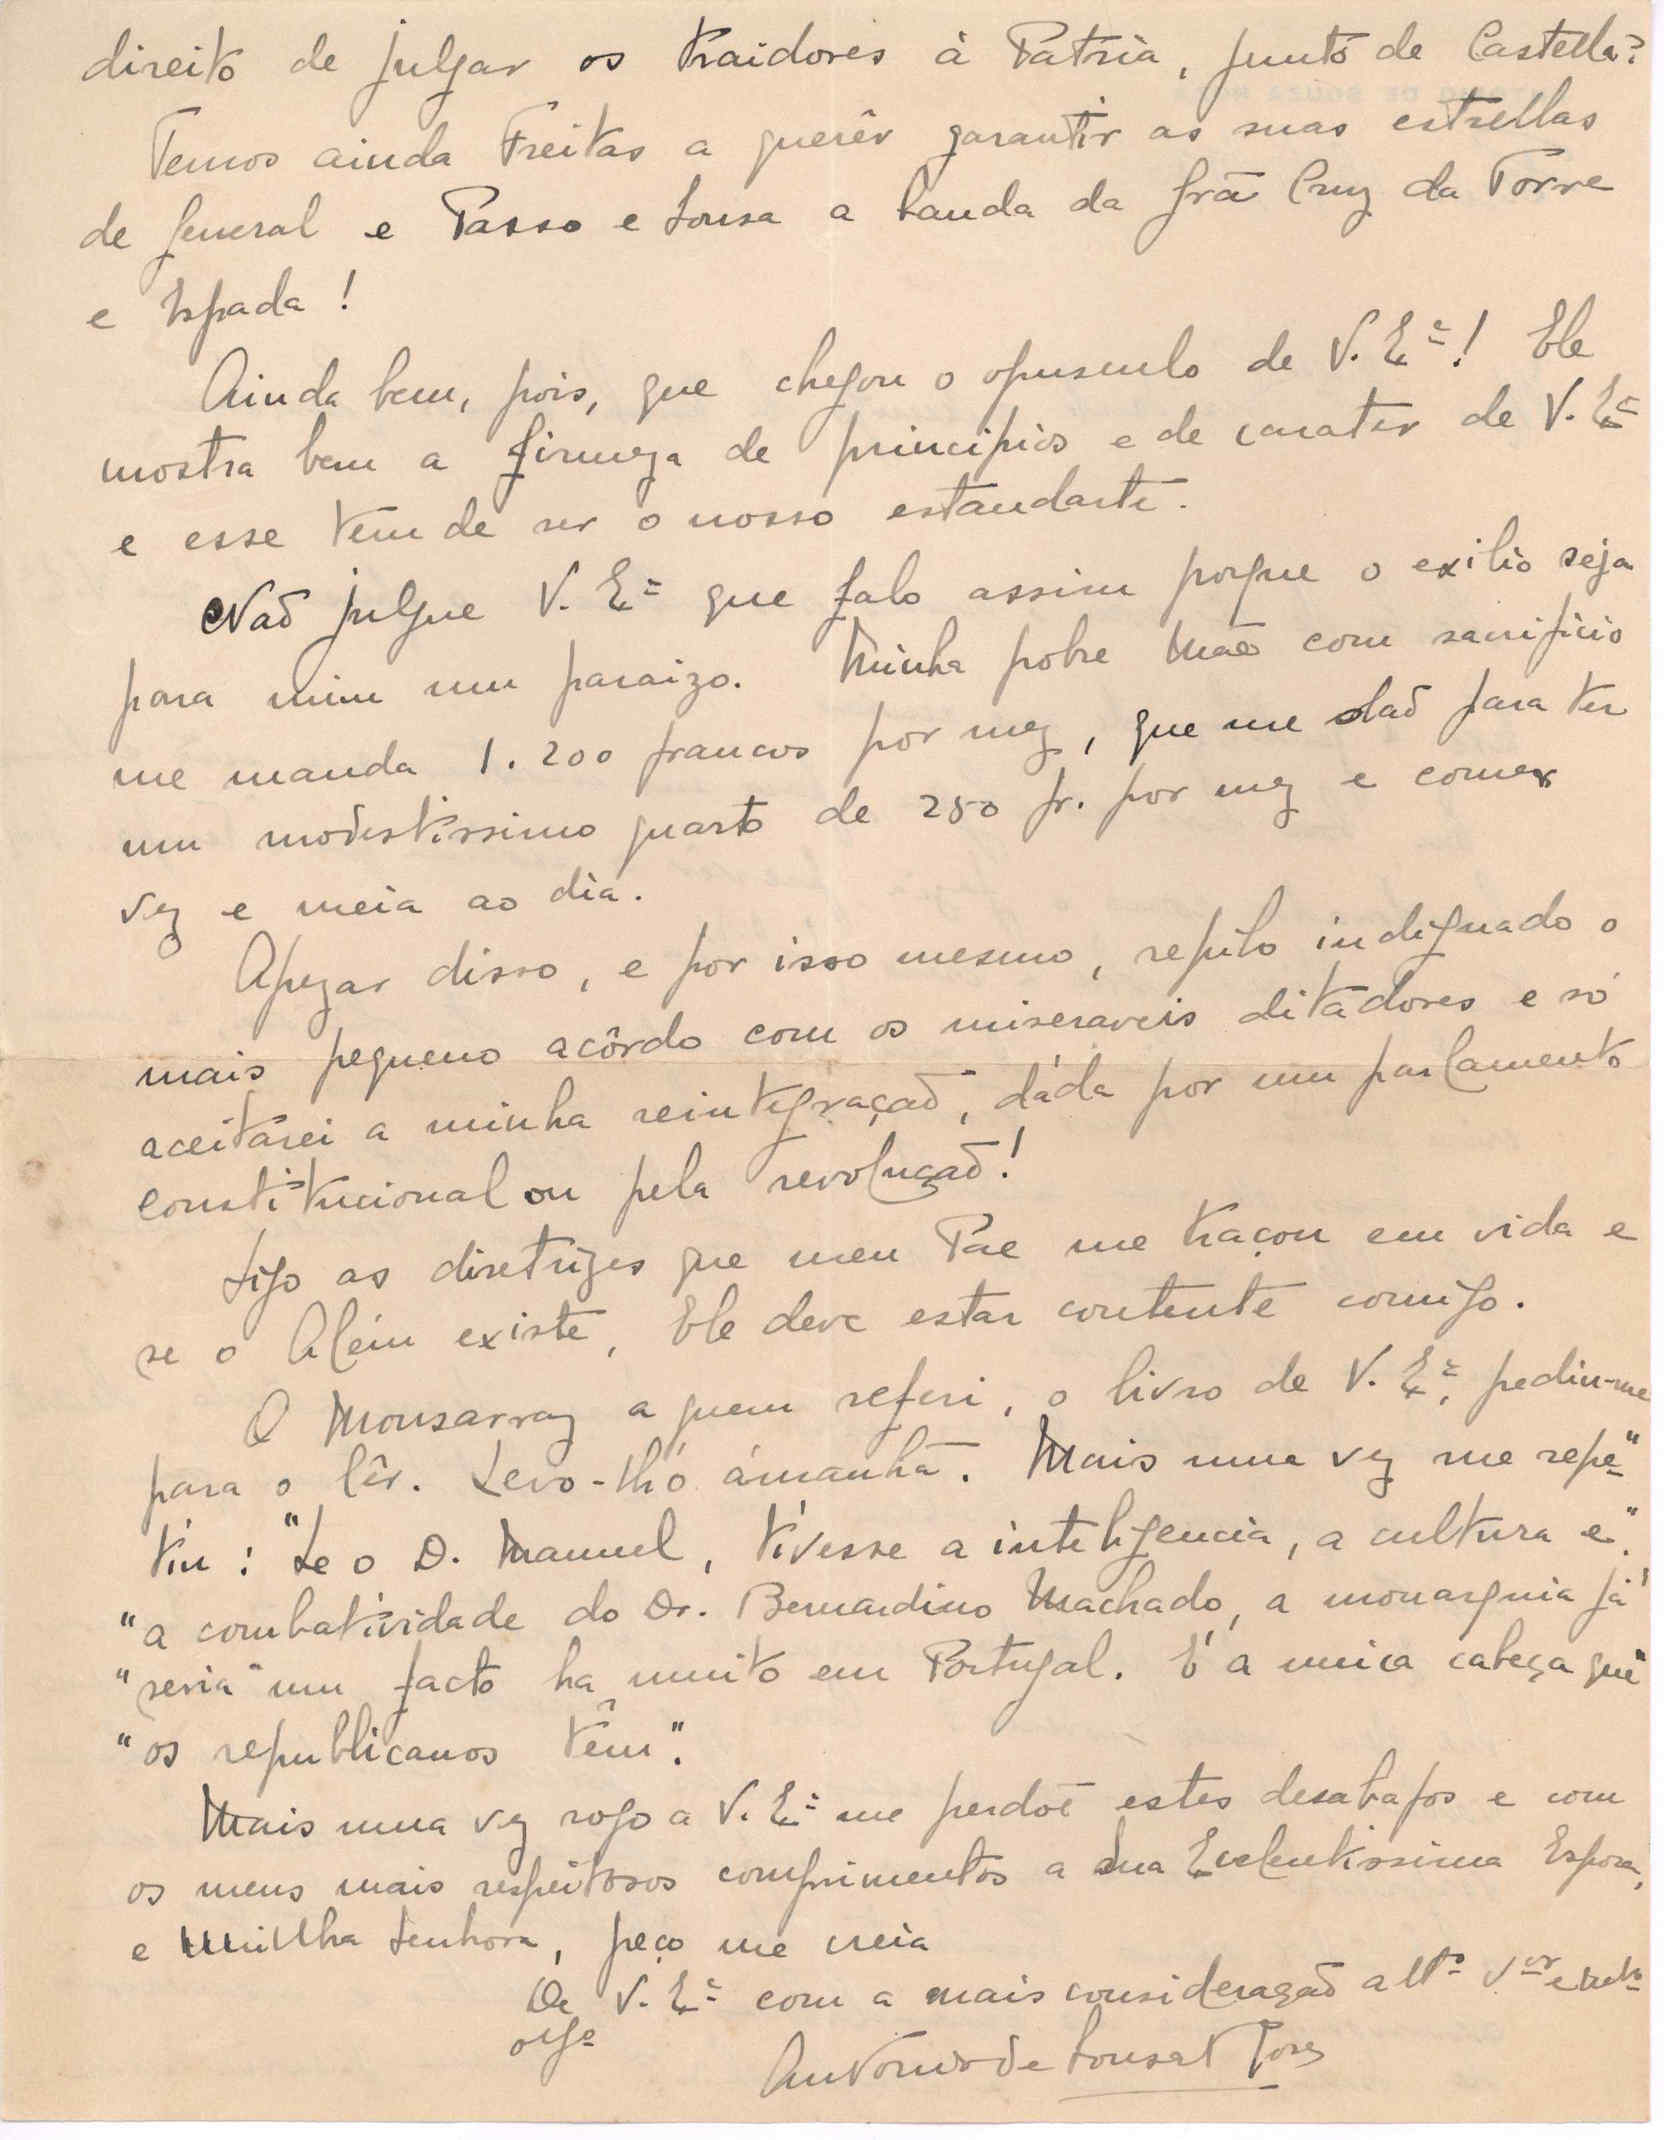 direito de julgar os traidores à Patria, junto de Castella?
Temos ainda Freitas a querêr garantir as suas estrellas
de General e Passo e Sousa a banda da Grã Cruz da Torre
e Espada!
Ainda bem, pois, que chegou o opusculo de V. Exª! Ele
mostra bem a firmeza de principios e de carater de V. Exª
e esse tem de ser o nosso estandarte.
Naõ julgue V. Exª que falo assim porque o exilio seja
para mim um paraizo. Minha pobre Mãe com sacrificio
me manda 1.200 francos por mez, que me daõ para ter
um modestissimo quarto de 250 fr. por mez e comer
vez e meia ao dia.
Apezar disso, e por isso mesmo, repilo indignado o
mais pequeno acôrdo com os miseraveis ditadores e só
aceitarei a minha reintegraçaõ, dáda por um parlamento
constitucional ou pela revoluçaõ!
Sigo as diretrizes que meu Pae me traçou em vida e
se o Além existe, Ele deve estar contente comigo.
O Monsarraz a quem referi, o livro de V. Exª, pediu-me
para o lêr. Levo-lhó ámanhã. Mais uma vez me repe"
tiu: "Se o D. Manuel, tivesse a inteligencia, a cultura e"
"a combatividade do Dr. Bernardino Machado, a monarquia já"
"seria um facto ha muito em Portugal. É a unica cabeça que"
"os republicanos têm".
Mais uma vez rogo a V. Exª me perdôe estes desabafos e com
os meus mais respeitosos comprimentos a Sua Excelentissima Esposa,
e Minha Senhora, peço me creia
De V. Exª com a mais consideraçaõ attº vor e
obgº
Antonio de Sousa